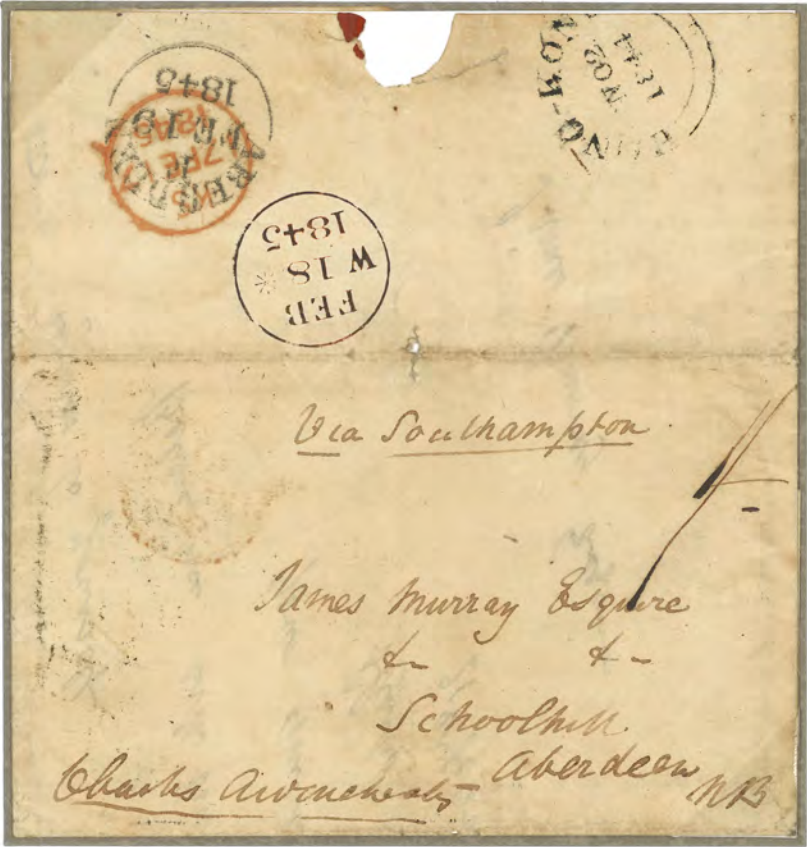 HONG-KONG
NO 2
1844
ABERDEEN
FE 19
1845
17 FE 17
1845
FEB
W 18
1845
Via Southampton
1/-
James Murray Esquire
&- &-
Schoolhill
Aberdeen
NB
Charles